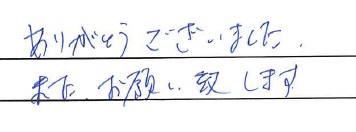 ありがとうございました.
また、お願い致します